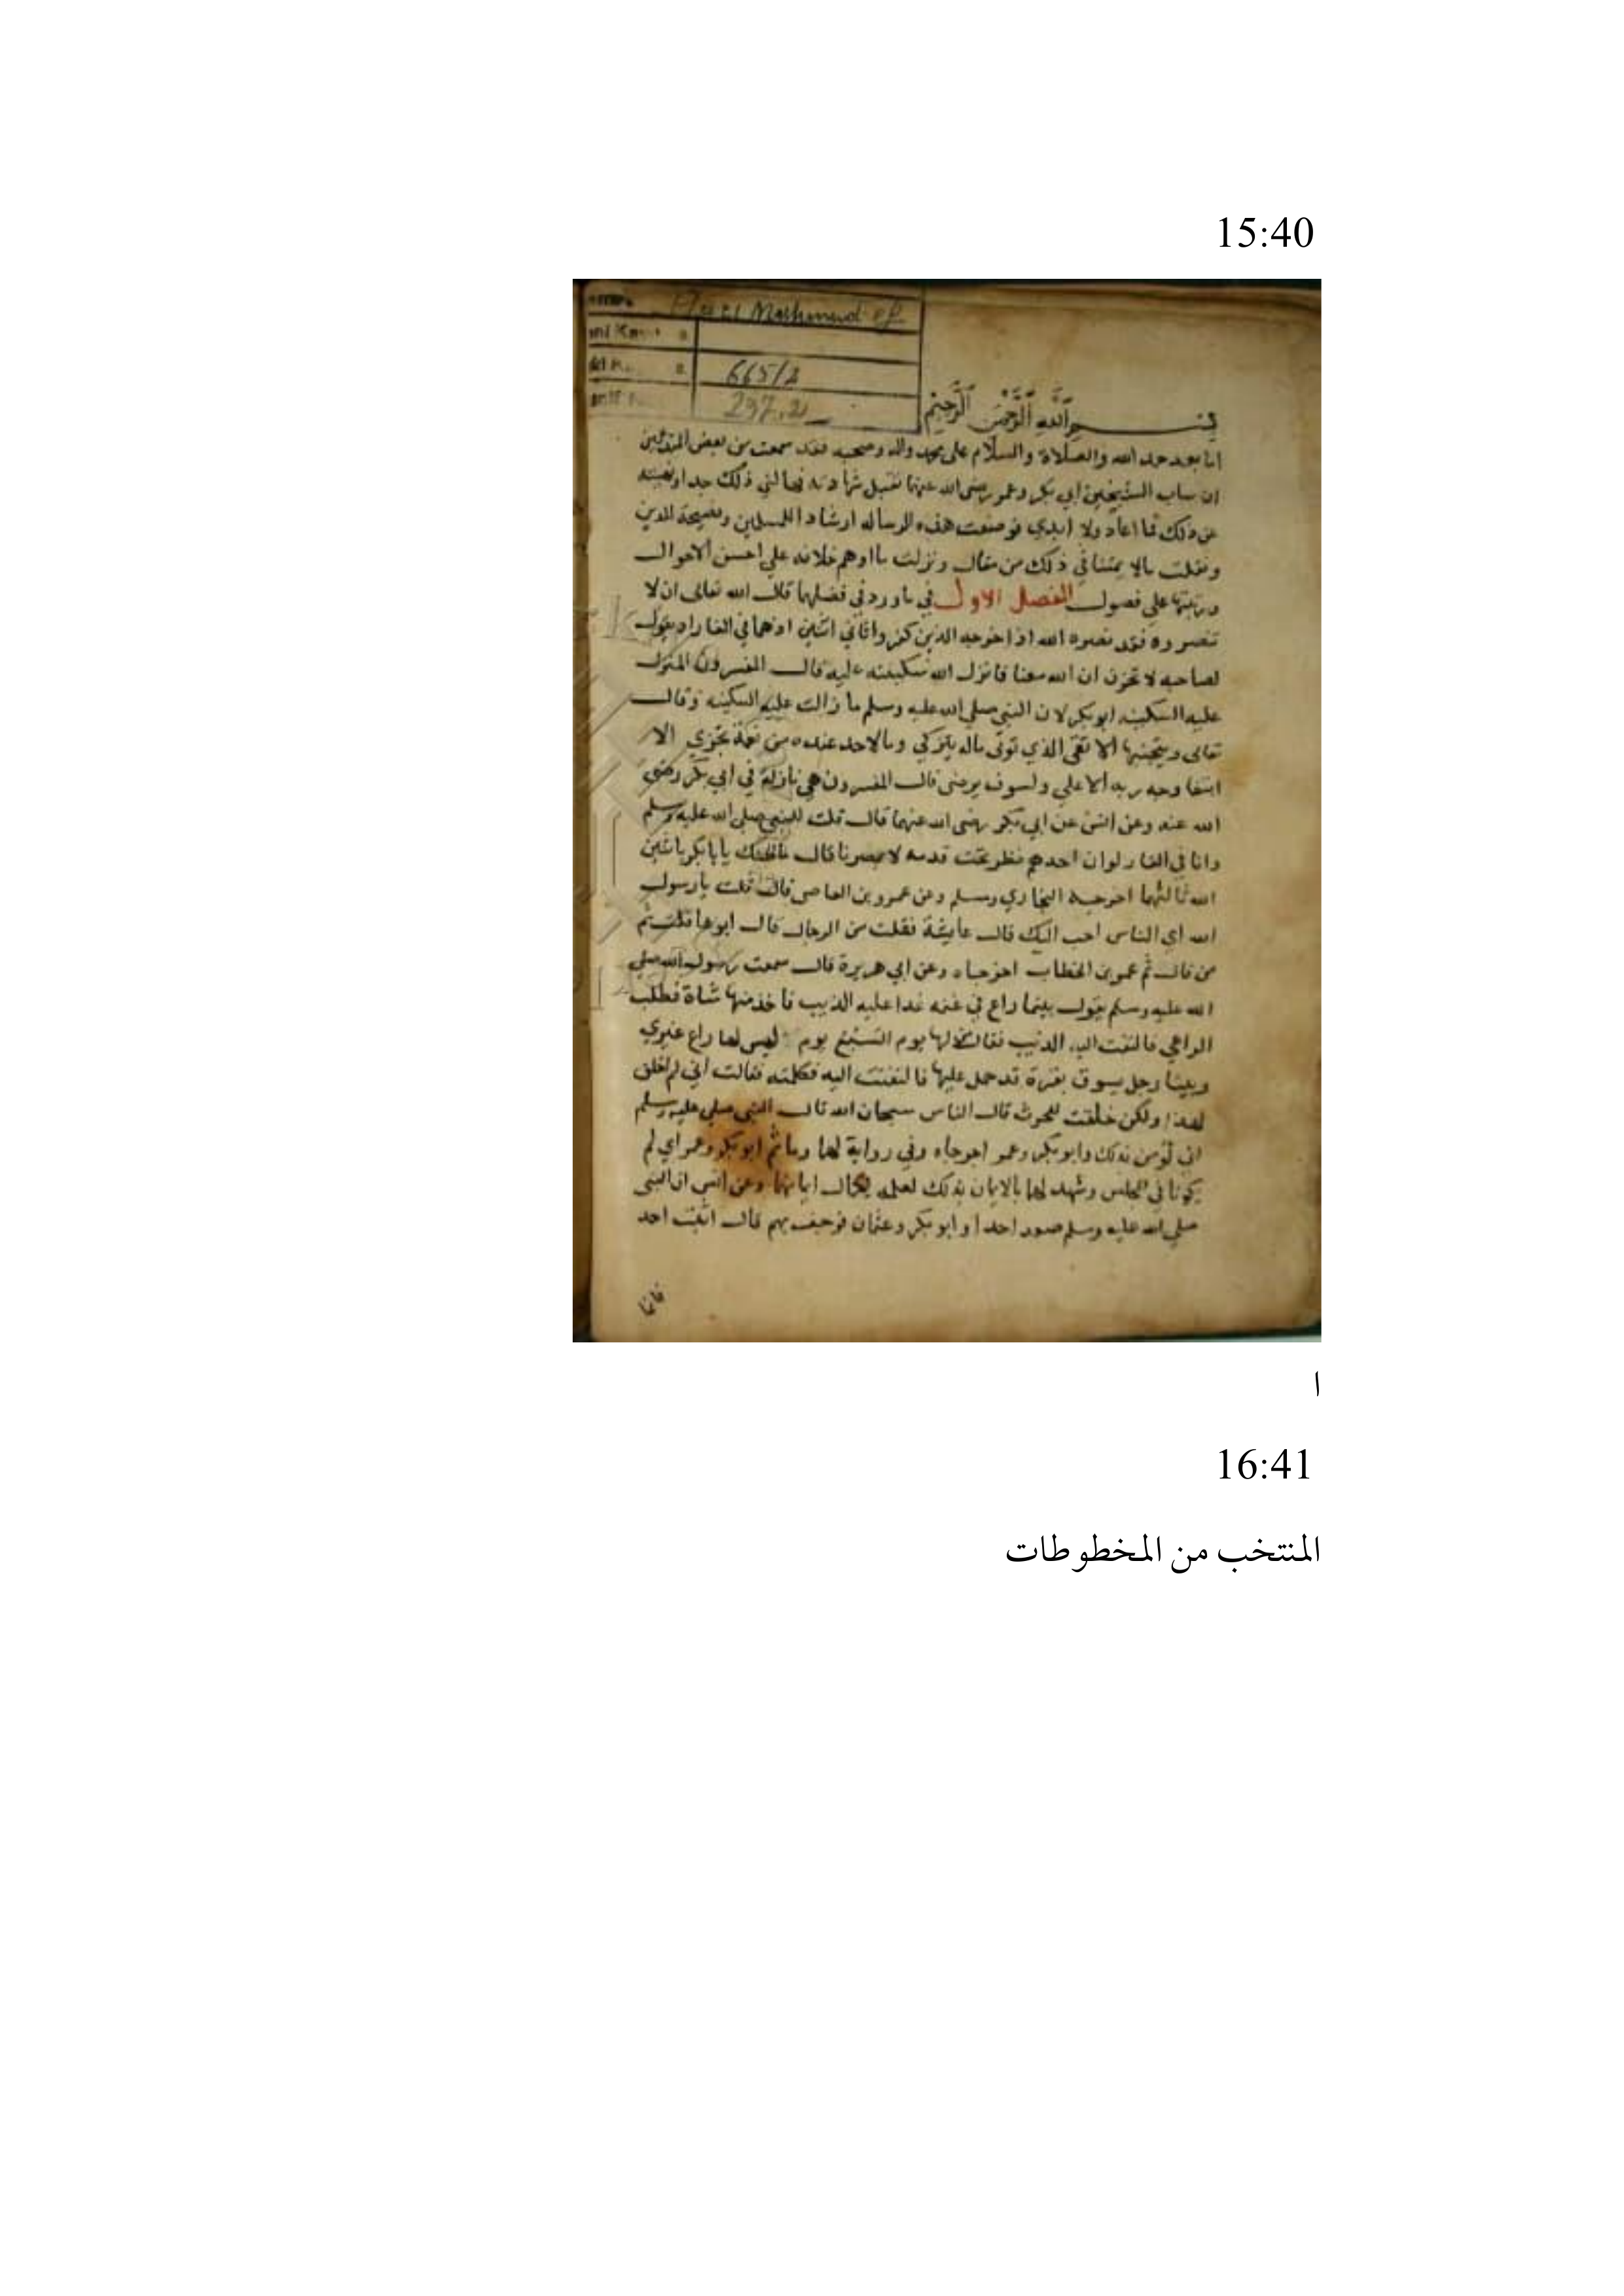 15:40
Mahmud ef.
665/2
297.2
بسم الله الرحمن الرحيم
اما بعد حمد الله والصلاة والسلام على محمد واله وصحبه فقد سمعت من بعض
ان ساب الشيخين ابي بكر وعمر رضى الله عنهما تقبل شهادته فهالني ذلك جدا
عن ذلك فما اعاد ولا ابدي فوضعت هذه الرساله ارشادا للمسلمين ونصيحة للدين
ونقلت مالا يمتنا في ذلك من مقال ونزلت ما اوهم خلافه علي احسن الاحوال
ورتبتها علي فصول الفصل الاول في ما ورد في فضلهما قال الله تعالى ان لا
تنصروه فقد نصره الله اذ اخرجه الذين كفروا ثاني اثنين اذ هما في الغار اذ يقول
لصاحبه لا تحزن ان الله معنا فانزل الله سكينته عليه قال المفسرون المنزل
عليه السكينه ابو بكر لان النبي صلي الله عليه وسلم ما زالت عليه السكينه وقال
تعالى وسيجنبها الاتقى الذي يوتى ماله يتزكي وما لاحد عنده من نعمة تجزي الا
ابتغا وجه ربه الاعلي ولسوف يرضى قال المفسرون هي نازلة في ابي بكر رضى
الله عنه وعن انس عن ابي بكر رضى الله عنهما قال قلت للنبي صلى الله عليه وسلم
وانا في الغار لو ان احدهم نظر تحت قدمه لابصرنا قال ما ظنك يا با بكر باثنين
الله ثالثهما اخرجه البخاري ومسلم وعن عمرو بن العاص قال قلت يا رسول
الله اي الناس احب اليك قال عايشة فقلت من الرجال قال ابوها قلت ثم
من قال ثم عمر بن الخطاب اخرجاه وعن ابي هريرة قال سمعت رسول الله صلي
الله عليه وسلم يقول بينما راع في غنمه غدا عليه الذيب فاخذ منها شاة فطلب
الراعي فالتفت اليه الذيب فقال من لها يوم السبع يوم ليس لها راع غيري
وبينا رجل يسوق بقرة قد حمل عليها فالتفتت اليه فكلمته فقالت اني لم اخلق
لهذا ولكن خلقت للحرث قال الناس سبحان الله قال النبي صلي عليه وسلم
اني اومن بذلك وابو بكر وعمر اخرجاه وفي رواية لهما وما ثم ابو بكر وعمر اي لم
يكونا في المجلس وشهد لهما بالايمان بذلك لعلمه بكمال ايمانهما وعن انس ان النبي
صلي الله عليه وسلم صعد احدا وابو بكر وعثمان فرجف بهم قال اثبت احد
فانما
ا
16:41
المنتخب من المخطوطات